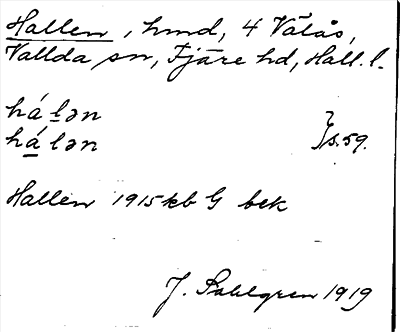 Hallen, hmd, 4 Valås,
Vallda sn, Fjäre hd, Hall. l.
há lən
há lən } s. 59.
Hallen 1915 kb G bek
J. Sahlgren 1919